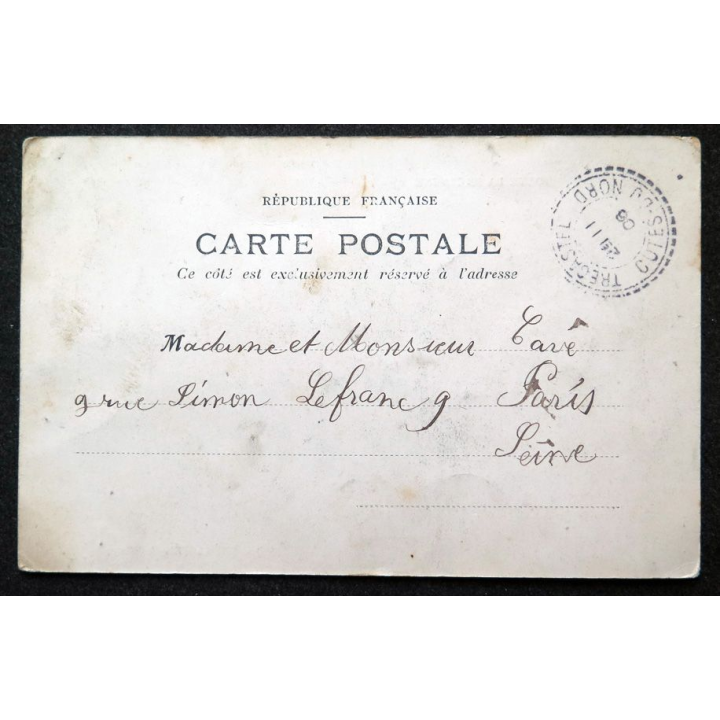 RÉPUBLIQUE FRANÇAISE
CARTE POSTALE
Ce côté est exclusivement réservé à l'adresse
TRÉGASTEL
CÔTES-DU-NORD
24 11
06
Madame et Monsieur Cavé
9 rue Simon Lefranc 9 Paris
Seine